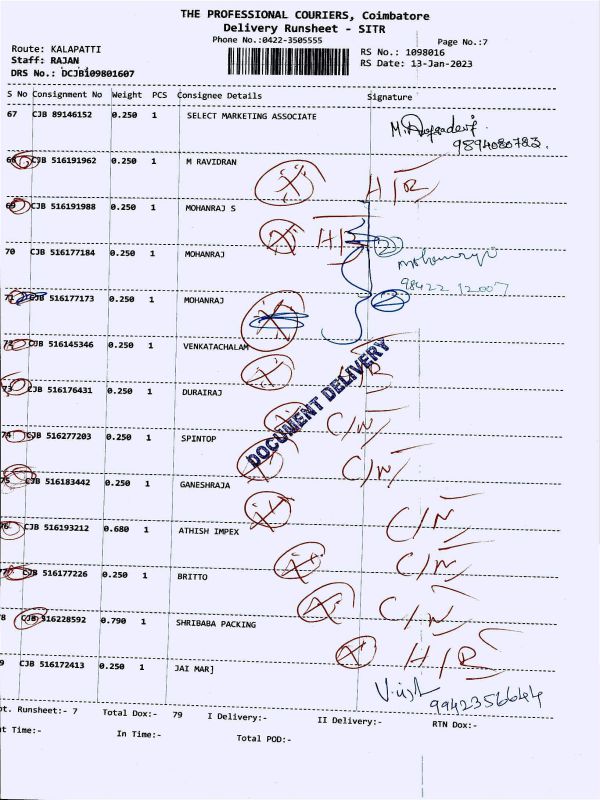 THE PROFESSIONAL COURIERS, Coimbatore
Delivery Runsheet - SITR
Phone No.:0422-3505555
Page No.:7
Route: KALAPATTI
RS No.: 1098016
Staff: RAJAN
RS Date: 13-Jan-2023
DRS No.: DCJB109801607
S No Consignment No Weight PCS Consignee Details Signature
67 CJB 89146152 0.250 1 SELECT MARKETING ASSOCIATE
9894080783.
68 CJB 516191962 0.250 1 M RAVIDRAN
H/R
69 CJB 516191988 0.250 1 MOHANRAJ S
H/R
70 CJB 516177184 0.250 1 MOHANRAJ
mohanraj
98422 12007
71 CJB 516177173 0.250 1 MOHANRAJ
72 CJB 516145346 0.250 1 VENKATACHALAM
73 CJB 516176431 0.250 1 DURAIRAJ
DOCUMENT DELIVERY
C/N
74 CJB 516277203 0.250 1 SPINTOP
C/N
75 CJB 516183442 0.250 1 GANESHRAJA
C/N
76 CJB 516193212 0.680 1 ATHISH IMPEX
C/N
77 CJB 516177226 0.250 1 BRITTO
C/N
78 CJB 516228592 0.790 1 SHRIBABA PACKING
H/R
9 CJB 516172413 0.250 1 JAI MARJ
9942356644
ot. Runsheet:- 7 Total Dox:- 79 I Delivery:- II Delivery:- RTN Dox:-
ut Time:- In Time:- Total POD:-